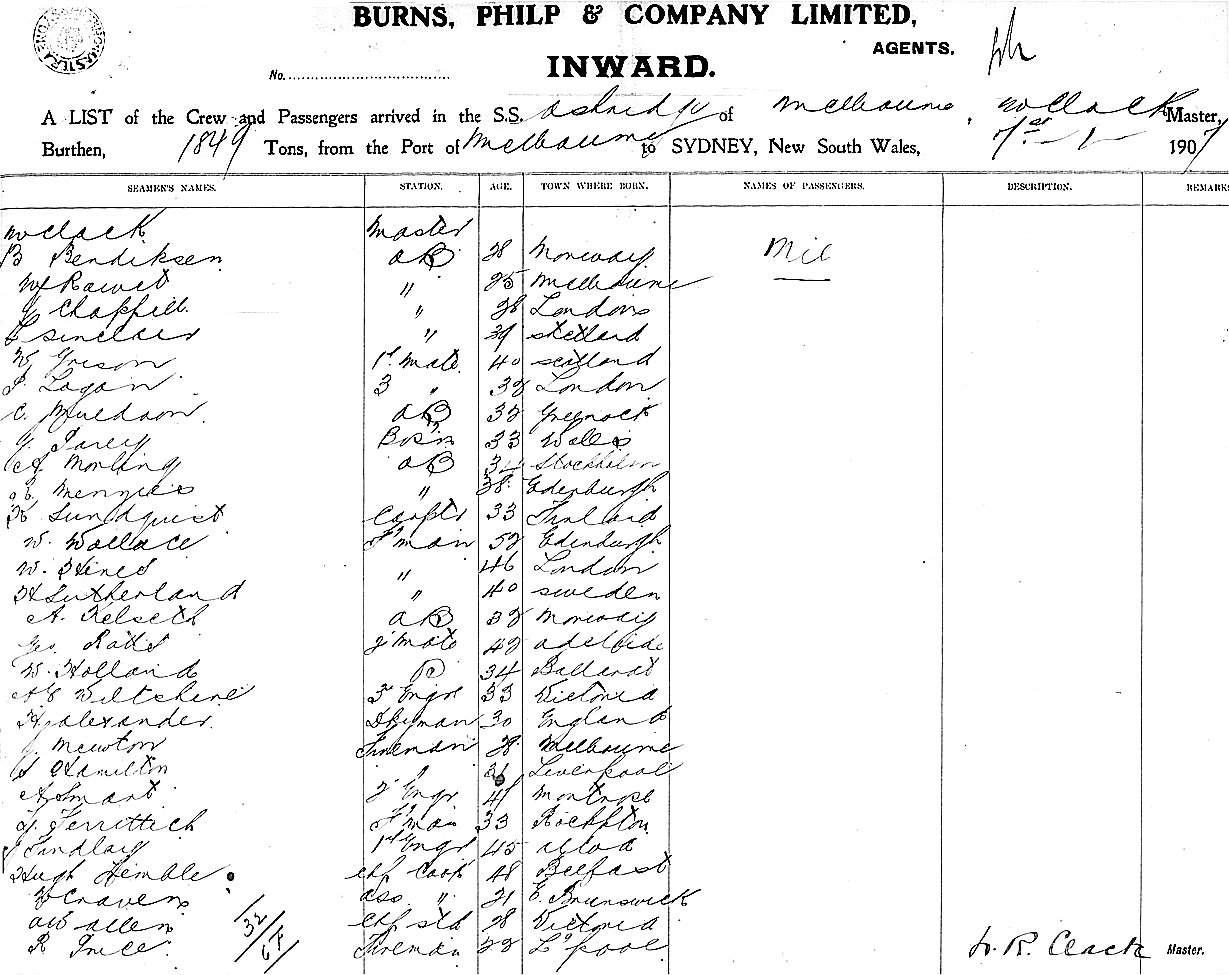 BURNS, PHILP & COMPANY LIMITED,
AGENTS.
No.
INWARD.
A LIST of the Crew and Passengers arrived in the S.S. of Melbourne, W Clack Master,
Burthen, 1849 Tons, from the Port of Melbourne to SYDNEY, New South Wales, 1st - 1 - 1907
SEAMEN'S NAMES. STATION. AGE. TOWN WHERE BORN. NAMES OF PASSENGERS. DESCRIPTION. REMARKS
W Clack Master
B Bendiksen AB 28 Norway Nil
W Rawet " 25 Melbourne
G Chappill " 28 London
Sinclair " 39 Shetland
W Grison 1st Mate 40 Scotland
Logan 3 " 32 London
C. Muldoon AB 32 Greenock
Bos'n 33 Wales
Morling AB 34 Stockholm
Menzies " 38 Edenburgh
Lundquist Carptr 33 Finland
W. Wallace F'man 52 Edinburgh
W. Hines " 46 London
H Sutherland " 40 Sweden
A. Kelseth AB 32 Norway
Geo. 2' Mate 42 Adelaide
W. Holland 34 Ballarat
A E Wiltshire 3rd Engr 33 Victoria
H Alexander D'keyman 30 England
J Newton Fireman 28 Melbourne
Hamilton " Liverpool
A Smart 2' Engr 41 Montrose
F'man 33 Rockhpton
J Findlay 1st Engr 45 Alloa
Hugh Kimble chf Cook 48 Belfast
W Cravens ass. " 21 E. Brunswick
A W Allen chf std 28 Victoria
R Price Fireman 22 L'pool
32/
W. R. Clack Master.